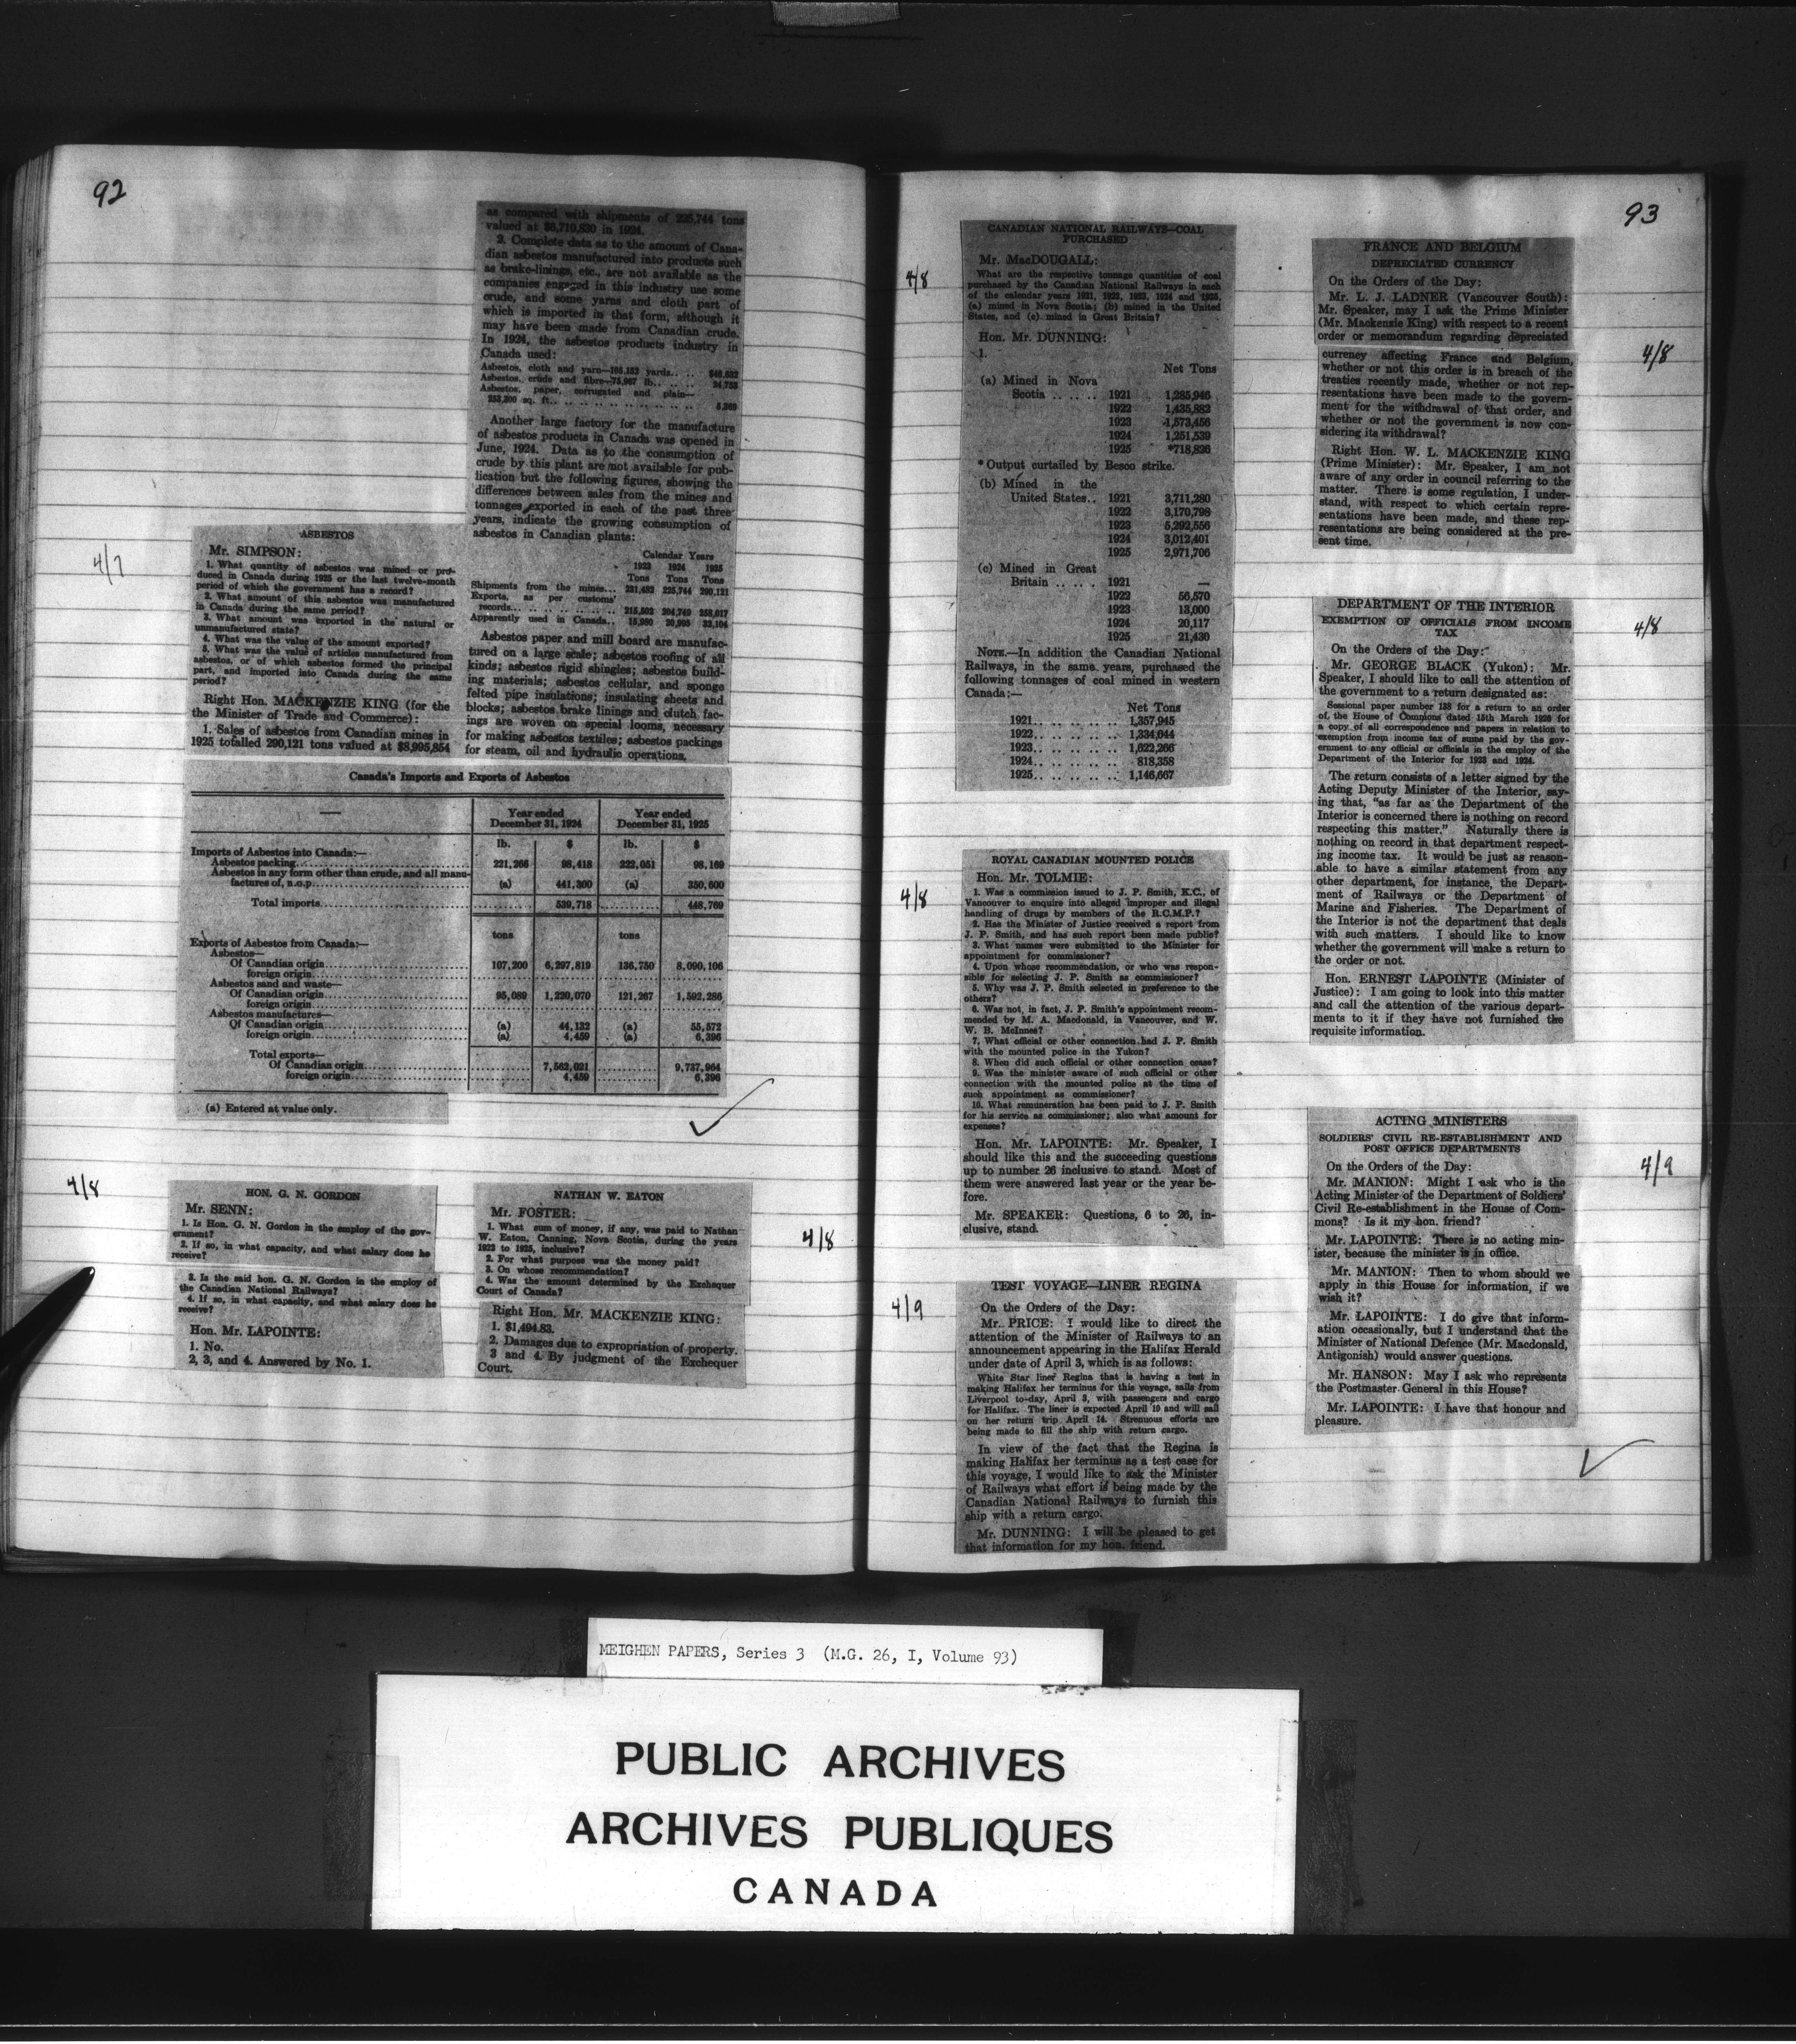 92
4/7
ASBESTOS
Mr. SIMPSON:
1. What quantity of asbestos was mined or pro-
duced in Canada during 1925 or the last twelve-month
period of which the government has a record?
2. What amount of this asbestos was manufactured
in Canada during the same period?
3. What amount was exported in the natural or
unmanufactured state?
4. What was the value of the amount exported?
5. What was the value of articles manufactured from
asbestos, or of which asbestos formed the principal
part, and imported into Canada during the same
period?
Right Hon. MACKENZIE KING (for the
the Minister of Trade and Commerce):
1. Sales of asbestos from Canadian mines in
1925 totalled 290,121 tons valued at $8,995,854
as compared with shipments of 225,744 tons
valued at $6,710,830 in 1924.
2. Complete data as to the amount of Cana-
dian asbestos manufactured into products such
as brake-linings, etc., are not available as the
companies engaged in this industry use some
crude, and some yarns and cloth part of
which is imported in that form, although it
may have been made from Canadian crude.
In 1924, the asbestos products industry in
Canada used:
Asbestos, cloth and yarn—
Asbestos, crude and fibre—
Asbestos, paper, corrugated and plain—
253,300 sq. ft.
Another large factory for the manufacture
of asbestos products in Canada was opened in
June, 1924. Data as to the consumption of
crude by this plant are not available for pub-
lication but the following figures, showing the
differences between sales from the mines and
tonnages exported in each of the past three
years, indicate the growing consumption of
asbestos in Canadian plants:
Calendar Years
1923 1924 1925
Tons Tons Tons
Shipments from the mines... 231,482 225,744 290,121
Exports, as per customs'
records.. 215,502 204,749 258,017
Apparently used in Canada.. 15,980 20,995 32,104
Asbestos paper and mill board are manufac-
tured on a large scale; asbestos roofing of all
kinds; asbestos rigid shingles; asbestos build-
ing materials; asbestos cellular, and sponge
felted pipe insulations; insulating sheets and
blocks; asbestos brake linings and clutch fac-
ings are woven on special looms, necessary
for making asbestos textiles; asbestos packings
for steam, oil and hydraulic operations.
Canada's Imports and Exports of Asbestos
— Year ended December 31, 1924 Year ended December 31, 1925
lb. $ lb. $
Imports of Asbestos into Canada:—
Asbestos packing 221,266 98,418 222,051 98,169
Asbestos in any form other than crude, and all manu-
factures of, n.o.p. (a) 441,300 (a) 350,600
Total imports 539,718 448,769
tons tons
Exports of Asbestos from Canada:—
Asbestos—
Of Canadian origin 107,200 6,297,819 136,750 8,090,106
foreign origin
Asbestos sand and waste—
Of Canadian origin 95,089 1,220,070 121,267 1,592,286
foreign origin
Asbestos manufactures—
Of Canadian origin (a) 44,132 (a) 55,572
foreign origin (a) 4,459 (a) 6,396
Total exports—
Of Canadian origin 7,562,021 9,737,964
foreign origin 4,459 6,396
(a) Entered at value only.
4/8
HON. G. N. GORDON
Mr. SENN:
1. Is Hon. G. N. Gordon in the employ of the gov-
ernment?
2. If so, in what capacity, and what salary does he
receive?
3. Is the said hon. G. N. Gordon in the employ of
the Canadian National Railways?
4. If so, in what capacity, and what salary does he
receive?
Hon. Mr. LAPOINTE:
1. No.
2, 3, and 4. Answered by No. 1.
4/8
NATHAN W. EATON
Mr. FOSTER:
1. What sum of money, if any, was paid to Nathan
W. Eaton, Canning, Nova Scotia, during the years
1923 to 1925, inclusive?
2. For what purpose was the money paid?
3. On whose recommendation?
4. Was the amount determined by the Exchequer
Court of Canada?
Right Hon. Mr. MACKENZIE KING:
1. $1,494.83.
2. Damages due to expropriation of property.
3 and 4. By judgment of the Exchequer
Court.
93
4/8
CANADIAN NATIONAL RAILWAYS—COAL
PURCHASED
Mr. MacDOUGALL:
What are the respective tonnage quantities of coal
purchased by the Canadian National Railways in each
of the calendar years 1921, 1922, 1923, 1924 and 1925,
(a) mined in Nova Scotia; (b) mined in the United
States, and (c) mined in Great Britain?
Hon. Mr. DUNNING:
1.
Net Tons
(a) Mined in Nova
Scotia .. .. .. 1921 1,285,946
1922 1,435,882
1923 1,573,456
1924 1,251,539
1925 *718,826
* Output curtailed by Besco strike.
(b) Mined in the
United States.. 1921 3,711,280
1922 3,170,798
1923 5,292,556
1924 3,012,401
1925 2,971,706
(c) Mined in Great
Britain .. .. . 1921 —
1922 56,570
1923 13,000
1924 20,117
1925 21,430
NOTE.—In addition the Canadian National
Railways, in the same years, purchased the
following tonnages of coal mined in western
Canada:—
Net Tons
1921.. .. .. .. .. .. 1,357,945
1922.. .. .. .. .. .. 1,334,644
1923.. .. .. .. .. .. 1,622,266
1924.. .. .. .. .. .. 818,358
1925.. .. .. .. .. .. 1,146,667
4/8
ROYAL CANADIAN MOUNTED POLICE
Hon. Mr. TOLMIE:
1. Was a commission issued to J. P. Smith, K.C., of
Vancouver to enquire into alleged improper and illegal
handling of drugs by members of the R.C.M.P.?
2. Has the Minister of Justice received a report from
J. P. Smith, and has such report been made public?
3. What names were submitted to the Minister for
appointment for commissioner?
4. Upon whose recommendation, or who was respon-
sible for selecting J. P. Smith as commissioner?
5. Why was J. P. Smith selected in preference to the
others?
6. Was not, in fact, J. P. Smith's appointment recom-
mended by M. A. Macdonald, in Vancouver, and W.
W. B. McInnes?
7. What official or other connection had J. P. Smith
with the mounted police in the Yukon?
8. When did such official or other connection cease?
9. Was the minister aware of such official or other
connection with the mounted police at the time of
such appointment as commissioner?
10. What remuneration has been paid to J. P. Smith
for his service as commissioner; also what amount for
expenses?
Hon. Mr. LAPOINTE: Mr. Speaker, I
should like this and the succeeding questions
up to number 26 inclusive to stand. Most of
them were answered last year or the year be-
fore.
Mr. SPEAKER: Questions, 6 to 26, in-
clusive, stand.
4/9
TEST VOYAGE—LINER REGINA
On the Orders of the Day:
Mr. PRICE: I would like to direct the
attention of the Minister of Railways to an
announcement appearing in the Halifax Herald
under date of April 3, which is as follows:
White Star liner Regina that is having a test in
making Halifax her terminus for this voyage, sails from
Liverpool to-day, April 3, with passengers and cargo
for Halifax. The liner is expected April 10 and will sail
on her return trip April 14. Strenuous efforts are
being made to fill the ship with return cargo.
In view of the fact that the Regina is
making Halifax her terminus as a test case for
this voyage, I would like to ask the Minister
of Railways what effort is being made by the
Canadian National Railways to furnish this
ship with a return cargo.
Mr. DUNNING: I will be pleased to get
that information for my hon. friend.
FRANCE AND BELGIUM
DEPRECIATED CURRENCY
On the Orders of the Day:
Mr. L. J. LADNER (Vancouver South):
Mr. Speaker, may I ask the Prime Minister
(Mr. Mackenzie King) with respect to a recent
order or memorandum regarding depreciated
currency affecting France and Belgium,
whether or not this order is in breach of the
treaties recently made, whether or not rep-
resentations have been made to the govern-
ment for the withdrawal of that order, and
whether or not the government is now con-
sidering its withdrawal?
4/8
Right Hon. W. L. MACKENZIE KING
(Prime Minister): Mr. Speaker, I am not
aware of any order in council referring to the
matter. There is some regulation, I under-
stand, with respect to which certain repre-
sentations have been made, and these rep-
resentations are being considered at the pre-
sent time.
DEPARTMENT OF THE INTERIOR
EXEMPTION OF OFFICIALS FROM INCOME
TAX
4/8
On the Orders of the Day:
Mr. GEORGE BLACK (Yukon): Mr.
Speaker, I should like to call the attention of
the government to a return designated as:
Sessional paper number 138 for a return to an order
of the House of Commons dated 15th March 1926 for
a copy of all correspondence and papers in relation to
exemption from income tax of sums paid by the gov-
ernment to any official or officials in the employ of the
Department of the Interior for 1923 and 1924.
The return consists of a letter signed by the
Acting Deputy Minister of the Interior, say-
ing that, "as far as the Department of the
Interior is concerned there is nothing on record
respecting this matter." Naturally there is
nothing on record in that department respect-
ing income tax. It would be just as reason-
able to have a similar statement from any
other department, for instance, the Depart-
ment of Railways or the Department of
Marine and Fisheries. The Department of
the Interior is not the department that deals
with such matters. I should like to know
whether the government will make a return to
the order or not.
Hon. ERNEST LAPOINTE (Minister of
Justice): I am going to look into this matter
and call the attention of the various depart-
ments to it if they have not furnished the
requisite information.
ACTING MINISTERS
SOLDIERS' CIVIL RE-ESTABLISHMENT AND
POST OFFICE DEPARTMENTS
4/9
On the Orders of the Day:
Mr. MANION: Might I ask who is the
Acting Minister of the Department of Soldiers'
Civil Re-establishment in the House of Com-
mons? Is it my hon. friend?
Mr. LAPOINTE: There is no acting min-
ister, because the minister is in office.
Mr. MANION: Then to whom should we
apply in this House for information, if we
wish it?
Mr. LAPOINTE: I do give that inform-
ation occasionally, but I understand that the
Minister of National Defence (Mr. Macdonald,
Antigonish) would answer questions.
Mr. HANSON: May I ask who represents
the Postmaster General in this House?
Mr. LAPOINTE: I have that honour and
pleasure.
MEIGHEN PAPERS, Series 3 (M.G. 26, I, Volume 93)
PUBLIC ARCHIVES
ARCHIVES PUBLIQUES
CANADA